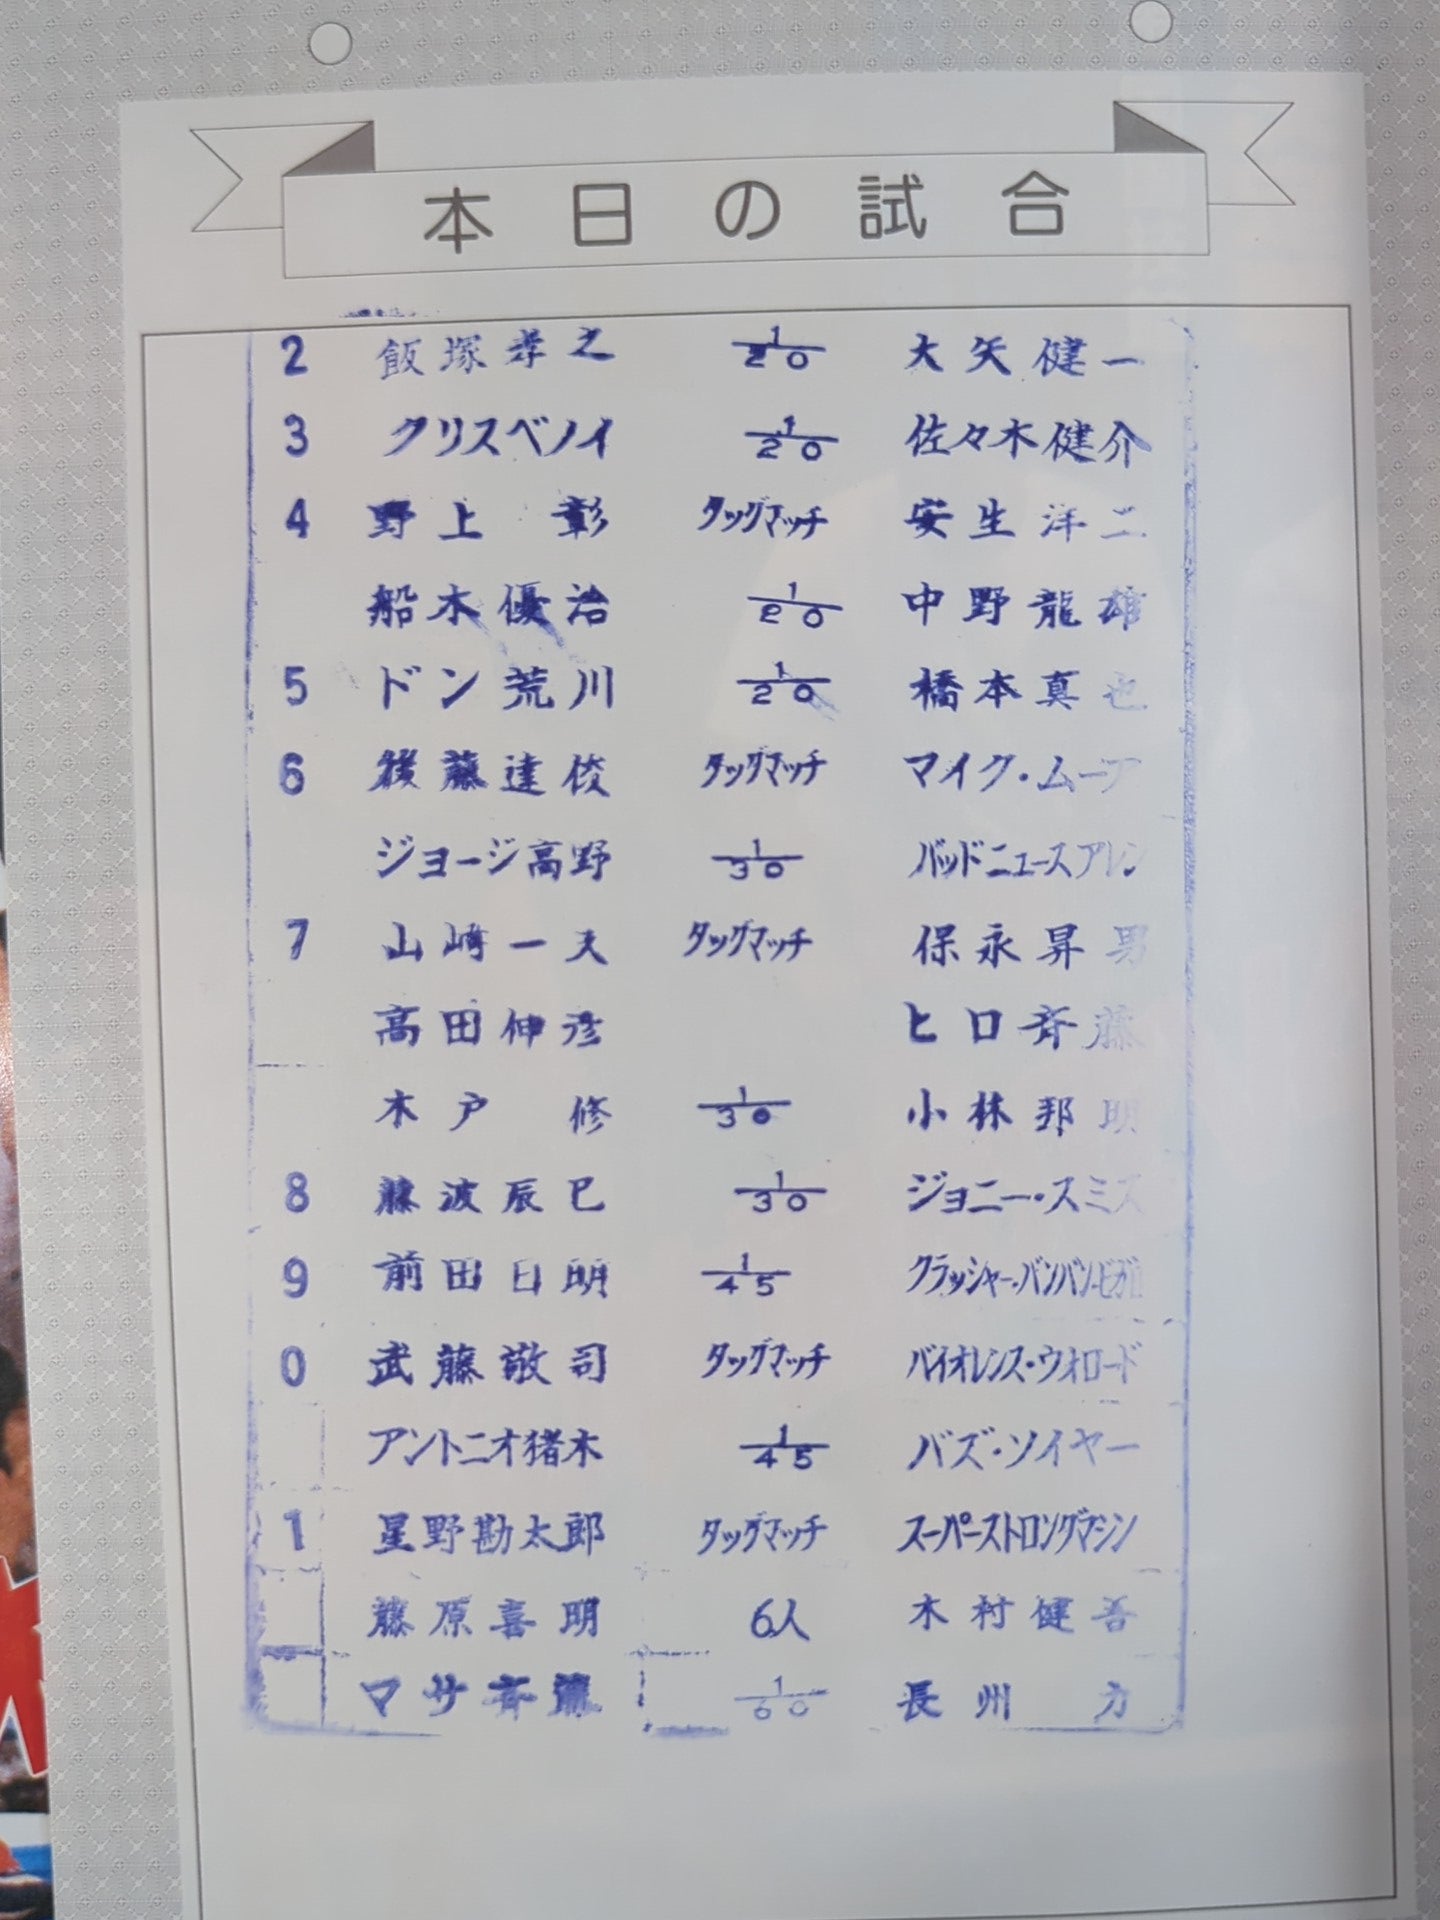 本日の試合
2 飯塚孝之 1/20 大矢健一
3 クリスベノイ 1/20 佐々木健介
4 野上 彰 タッグマッチ 安生洋二
船木優治 1/20 中野龍雄
5 ドン荒川 1/20 橋本真也
6 後藤達俊 タッグマッチ マイク・ムーア
ジョージ高野 1/30 バッドニュースアレン
7 山崎一夫 タッグマッチ 保永昇男
高田伸彦 ヒロ斉藤
木戸 修 1/30 小林邦明
8 藤波辰巳 1/30 ジョニー・スミス
9 前田日明 1/45 クラッシャー・バンバン・ビガロ
0 武藤敬司 タッグマッチ バイオレンス・ウォロード
アントニオ猪木 1/45 バズ・ソイヤー
1 星野勘太郎 タッグマッチ スーパーストロングマシン
藤原喜明 6人 木村健吾
マサ斉藤 1/60 長州 力